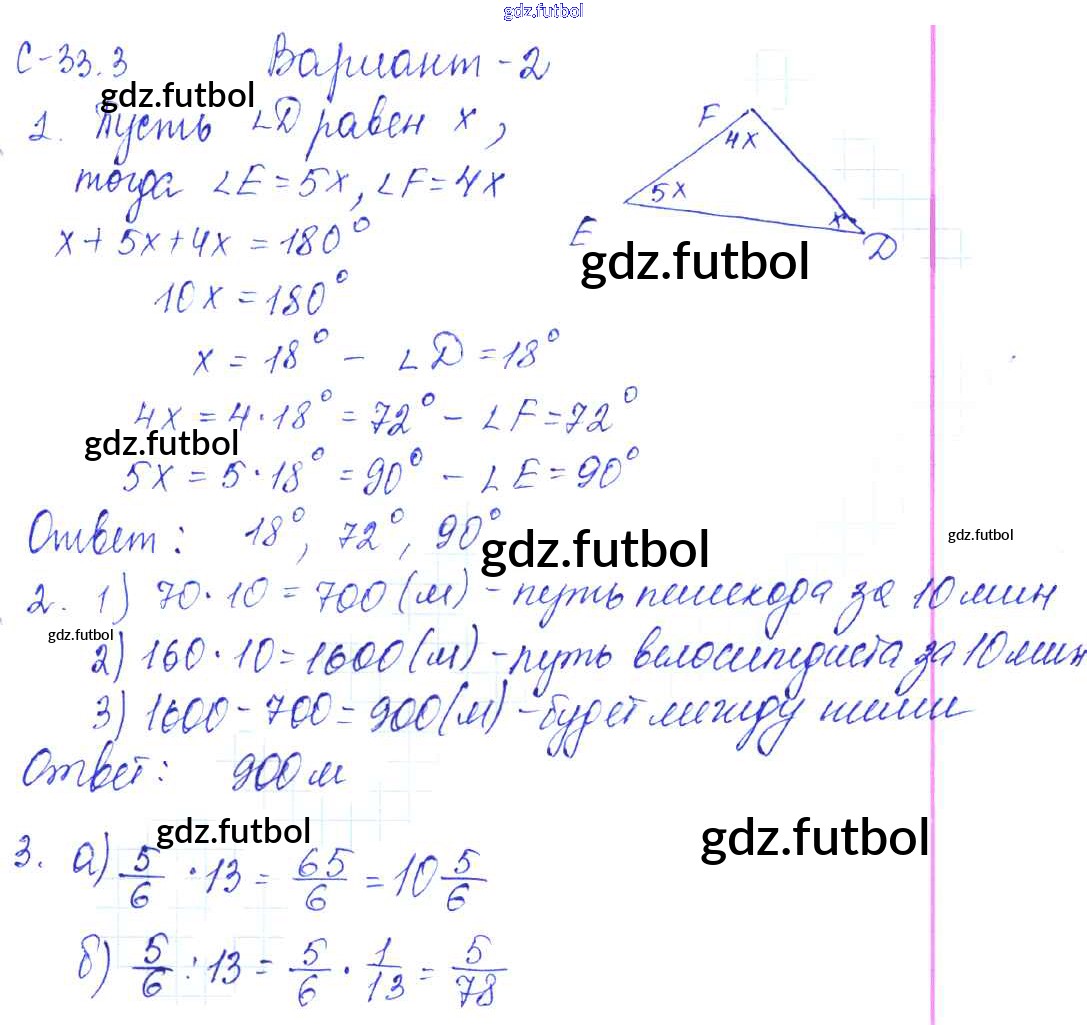 gdz.futbol
С-33.3 Вариант-2
gdz.futbol
1. Пусть ∠D равен x,
тогда ∠E = 5x, ∠F = 4x
x + 5x + 4x = 180°
10x = 180°
x = 18° - ∠D = 18°
4x = 4 · 18° = 72° - ∠F = 72°
gdz.futbol
5x = 5 · 18° = 90° - ∠E = 90°
F
4x
5x
x
E
D
gdz.futbol
Ответ: 18°, 72°, 90°
gdz.futbol
gdz.futbol
2. 1) 70 · 10 = 700 (м) - путь пешехода за 10 мин
gdz.futbol
2) 160 · 10 = 1600 (м) - путь велосипедиста за 10 мин
3) 1600 - 700 = 900 (м) - будет между ними
Ответ: 900 м
gdz.futbol
gdz.futbol
3. а) 5/6 · 13 = 65/6 = 10 5/6
б) 5/6 : 13 = 5/6 · 1/13 = 5/78